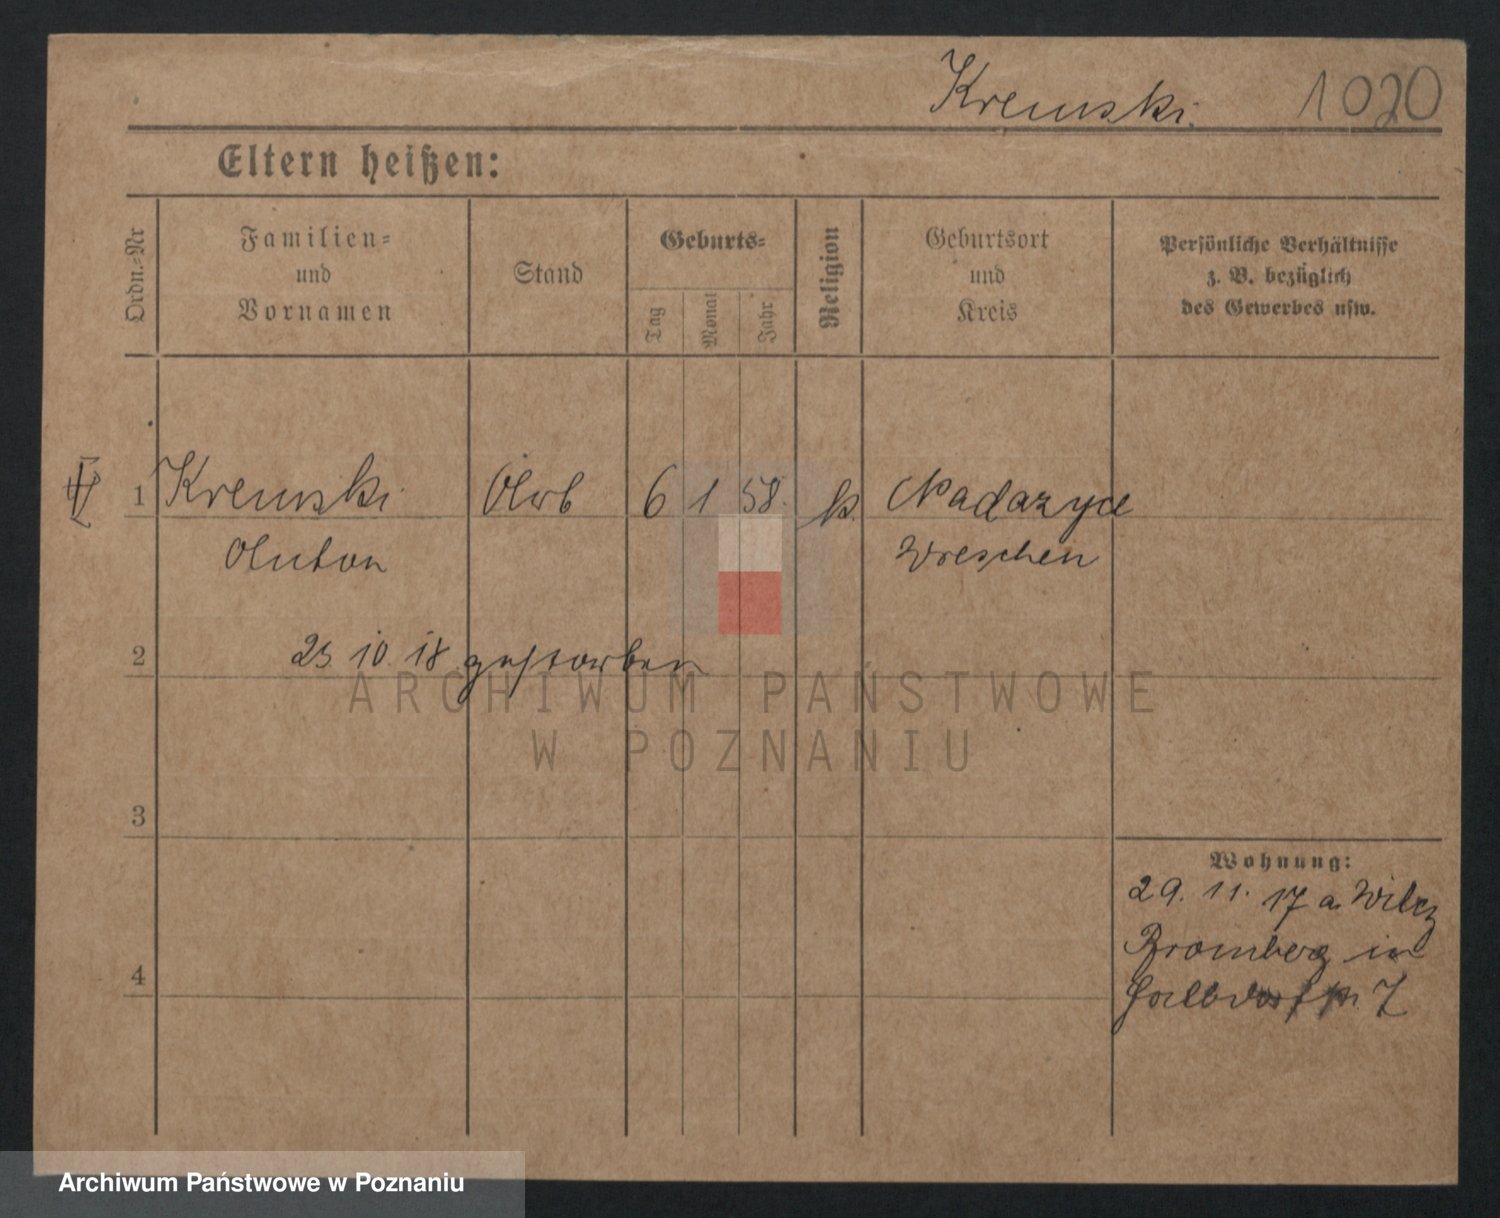 Kremski. 1020
Eltern heißen:
Ordn.-Nr
Familien=
und
Vornamen
Stand
Geburts=
Tag
Monat
Jahr
Religion
Geburtsort
und
Kreis
Persönliche Verhältnisse
z. B. bezüglich
des Gewerbes usw.
1 Kremski Arb 6 1 58. k. Nadazyce
Anton Wreschen
2 23 10. 18 gestorben
ARCHIWUM PAŃSTWOWE
W POZNANIU
3
Wohnung:
29. 11. 17 a. Wilcz
Bromberg in
4
7
Archiwum Państwowe w Poznaniu